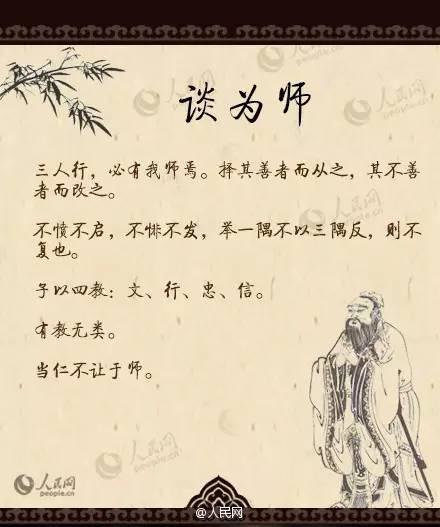 谈为师
三人行，必有我师焉。择其善者而从之，其不善
者而改之。
不愤不启，不悱不发，举一隅不以三隅反，则不
复也。
子以四教：文、行、忠、信。
有教无类。
当仁不让于师。
人民网
people.cn
人民网
people.cn
人民网
people.cn
人民网
people.cn
@人民网